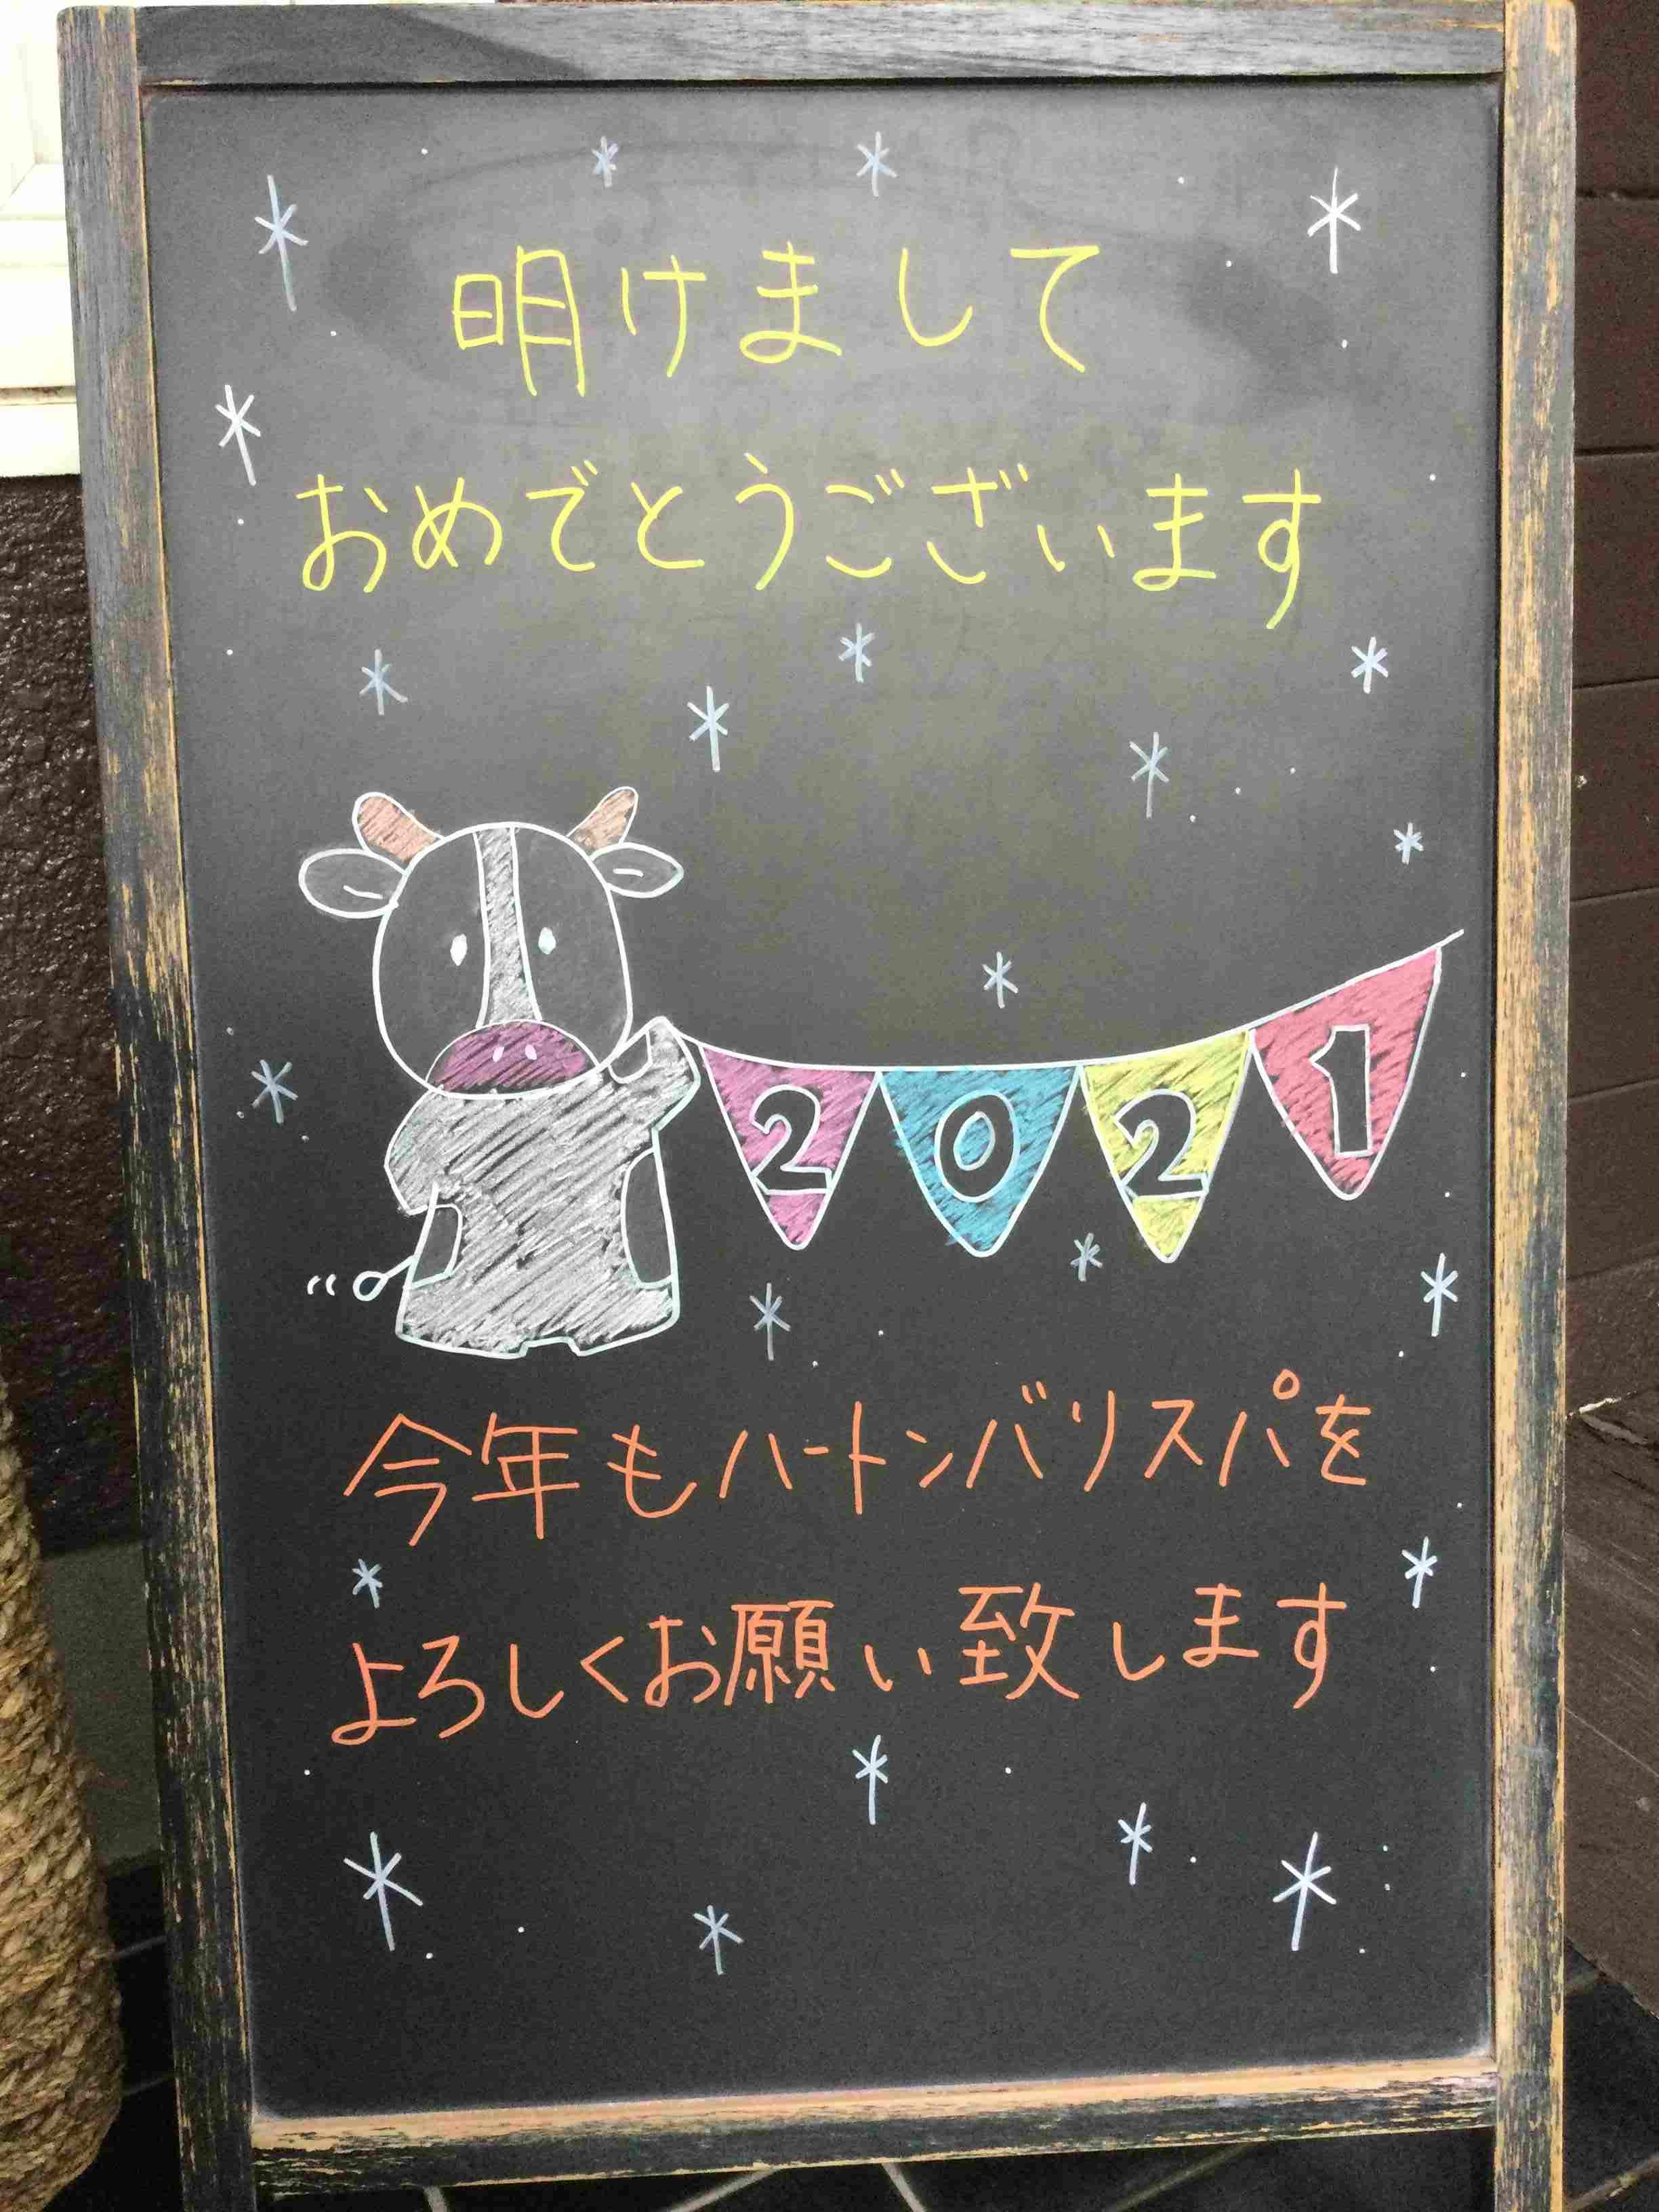 明けまして
おめでとうございます
2021
今年もハートンバリスパを
よろしくお願い致します